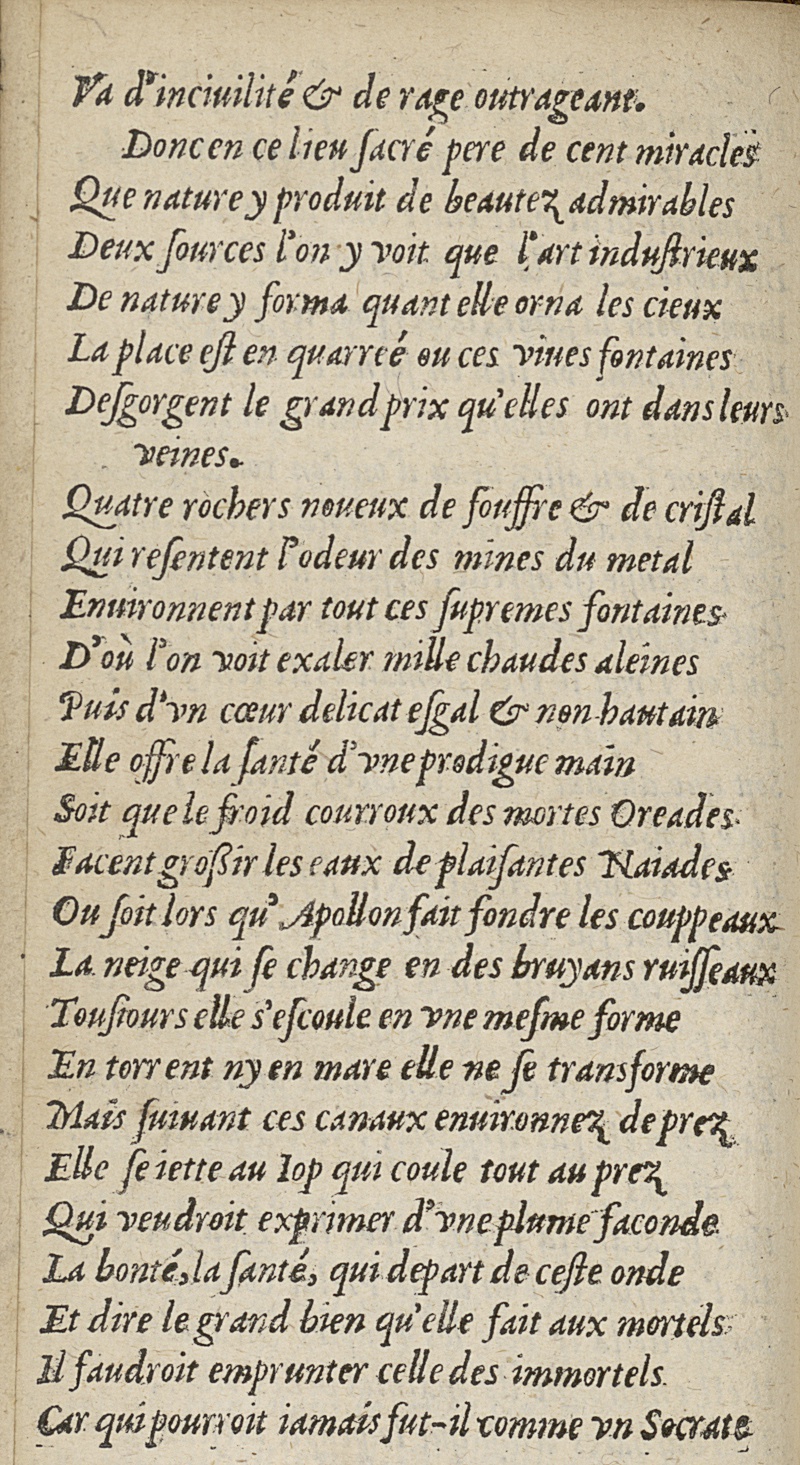 Va d'inciuilité & de rage outrageant.
Donc en ce lieu ſacré pere de cent miracles
Que nature y produit de beautez admirables
Deux ſources l'on y voit que l'art induſtrieux
De nature y forma quant elle orna les cieux
La place eſt en quarreé ou ces viues fontaines
Deſgorgent le grand prix qu'elles ont dans leurs
veines.
Quatre rochers noueux de ſouffre & de criſtal
Qui reſentent l'odeur des mines du metal
Enuironnent par tout ces ſupremes fontaines
D'où l'on voit exaler mille chaudes aleines
Puis d'vn cœur delicat eſgal & non hautain
Elle offre la ſanté d'vne prodigue main
Soit que le froid courroux des mortes Oreades
Facent groſſir les eaux de plaiſantes Naiades
Ou ſoit lors qu'Apollon fait fondre les couppeaux
La neige qui ſe change en des bruyans ruiſſeaux
Touſiours elle s'eſcoule en vne meſme forme
En torrent ny en mare elle ne ſe transforme
Mais ſuiuant ces canaux enuironnez de prez
Elle ſe iette au lop qui coule tout au prez
Qui veudroit exprimer d'vne plume faconde
La bonté, la ſanté, qui depart de ceſte onde
Et dire le grand bien qu'elle fait aux mortels
Il faudroit emprunter celle des immortels.
Car qui pourroit iamais fut-il comme vn Socrate